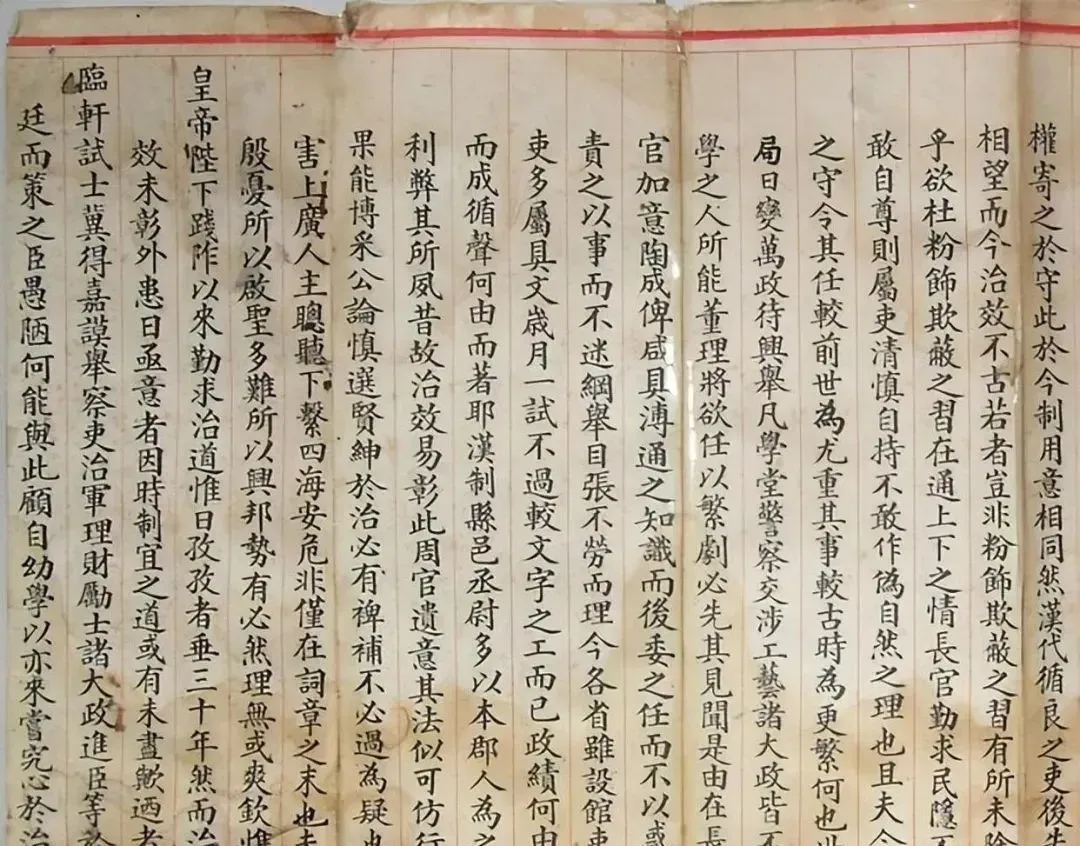 權寄之於守此於今制用意相同然漢代循良之吏後先
相望而今治效不古若者豈非粉飾欺蔽之習有所未除
乎欲杜粉飾欺蔽之習在通上下之情長官勤求民隱不
敢自尊則屬吏清慎自持不敢作偽自然之理也且夫今
之守令其任較前世為尤重其事較古時為更繁何也世
局日變萬政待興舉凡學堂警察交涉工藝諸大政皆不
學之人所能董理將欲任以繁劇必先其見聞是由在長
官加意陶成俾咸具溥通之知識而後委之任而不以或
責之以事而不迷綱舉目張不勞而理今各省雖設館
吏多屬具文歲月一試不過較文字之工而已政績何由
而成循聲何由而著耶漢制縣邑丞尉多以本郡人為之
利弊其所夙昔故治效易彰此周官遺意其法似可仿行
果能博采公論慎選賢紳於治必有裨補不必過為疑也
害上廣人主聰聽下繫四海安危非僅在詞章之末也夫
殷憂所以啟聖多難所以興邦勢有必然理無或爽欽惟
皇帝陛下踐阼以來勤求治道惟日孜孜者垂三十年然而治
效未彰外患日亟意者因時制宜之道或有未盡歟迺者
臨軒試士冀得嘉謨舉察吏治軍理財勵士諸大政進臣等於
廷而策之臣愚陋何能與此顧自幼學以亦來嘗究心於治